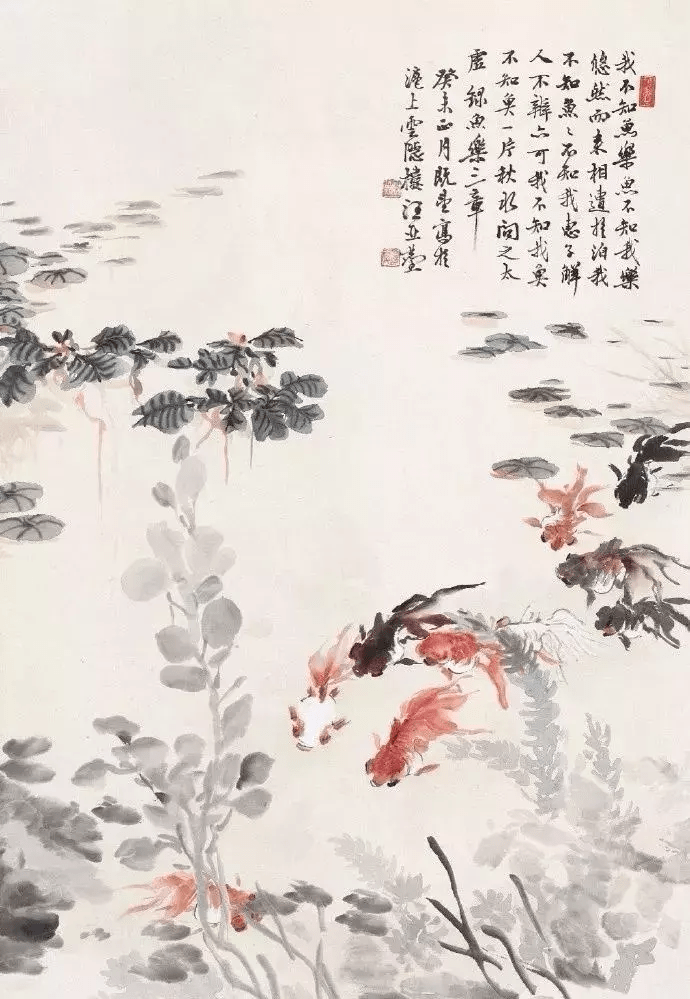 我不知魚樂魚不知我樂
悠然而来相遺於泊我
不知魚〻不知我惠子解
人不辯亦可我不知我魚
不知魚一片秋水问之太
虚 録魚樂三章
癸未正月既望寫於
滬上雲隱樓汪亞塵